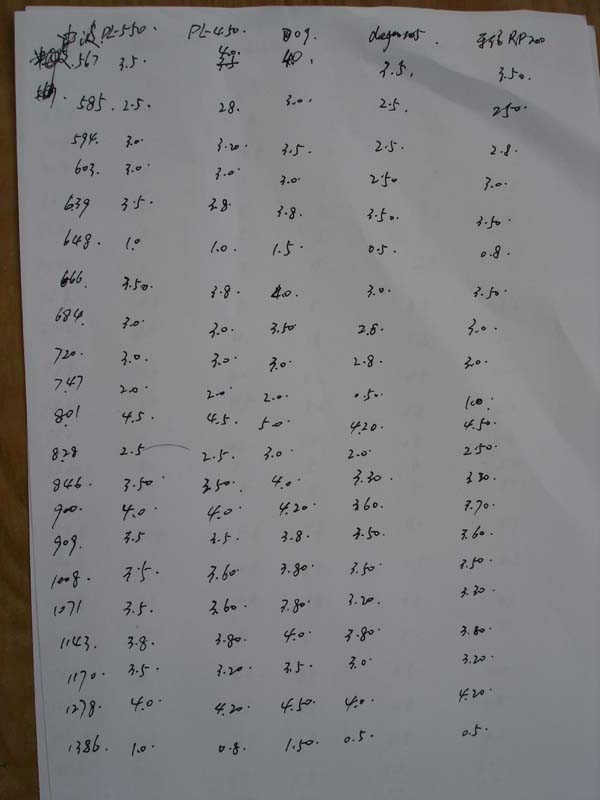 PL-550. PL-450. 009. degen105. RP200
567 3.5. 4.0 4.0. 3.5. 3.50.
585. 2.5. 28. 3.0. 2.5. 250.
594. 3.0. 3.20. 3.5. 2.5. 2.8.
603. 3.0. 3.0. 3.0. 2.50 3.0.
639 3.5. 3.8. 3.8. 3.50. 3.50.
648. 1.0 1.0. 1.5. 0.5. 0.8.
666. 3.50. 3.8. 4.0. 3.0. 3.50.
684. 3.0. 3.0. 3.50 2.8. 3.0.
720. 3.0. 3.0. 3.0. 2.8. 3.0.
747 2.0. 2.0. 2.0. 0.50. 1.00.
801 4.5. 4.5. 5.0. 4.20. 4.50.
828 2.5 2.5. 3.0. 2.0. 2.50.
846. 3.50. 3.50. 4.0. 3.30 3.80.
900. 4.0. 4.0. 4.20. 3.60. 3.70.
909. 3.5 3.5. 3.8. 3.50. 3.60.
1008. 3.5. 3.60. 3.80. 3.50. 3.50.
1071 3.5. 3.60. 3.80. 3.20. 3.30.
1143. 3.8. 3.80. 4.0. 3.80. 3.80.
1170. 3.5. 3.20. 3.5. 3.0. 3.20.
1278. 4.0. 4.20. 4.50. 4.0. 4.20.
1386. 1.0. 0.8. 1.50. 0.5. 0.5.